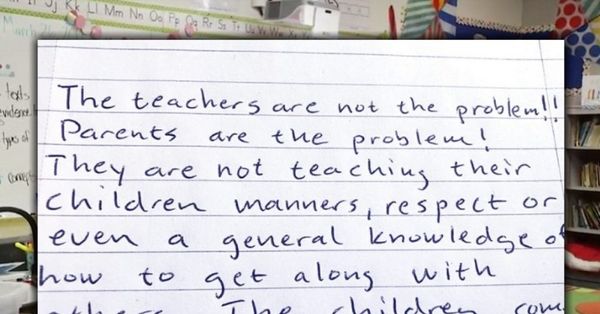 Kk Ll Mm Nn Oo Pp Qq Rr Ss Tt
texts
types of
The teachers are not the problem!!
Parents are the problem!
They are not teaching their
children manners, respect or
even a general knowledge of
how to get along with
others. The children com